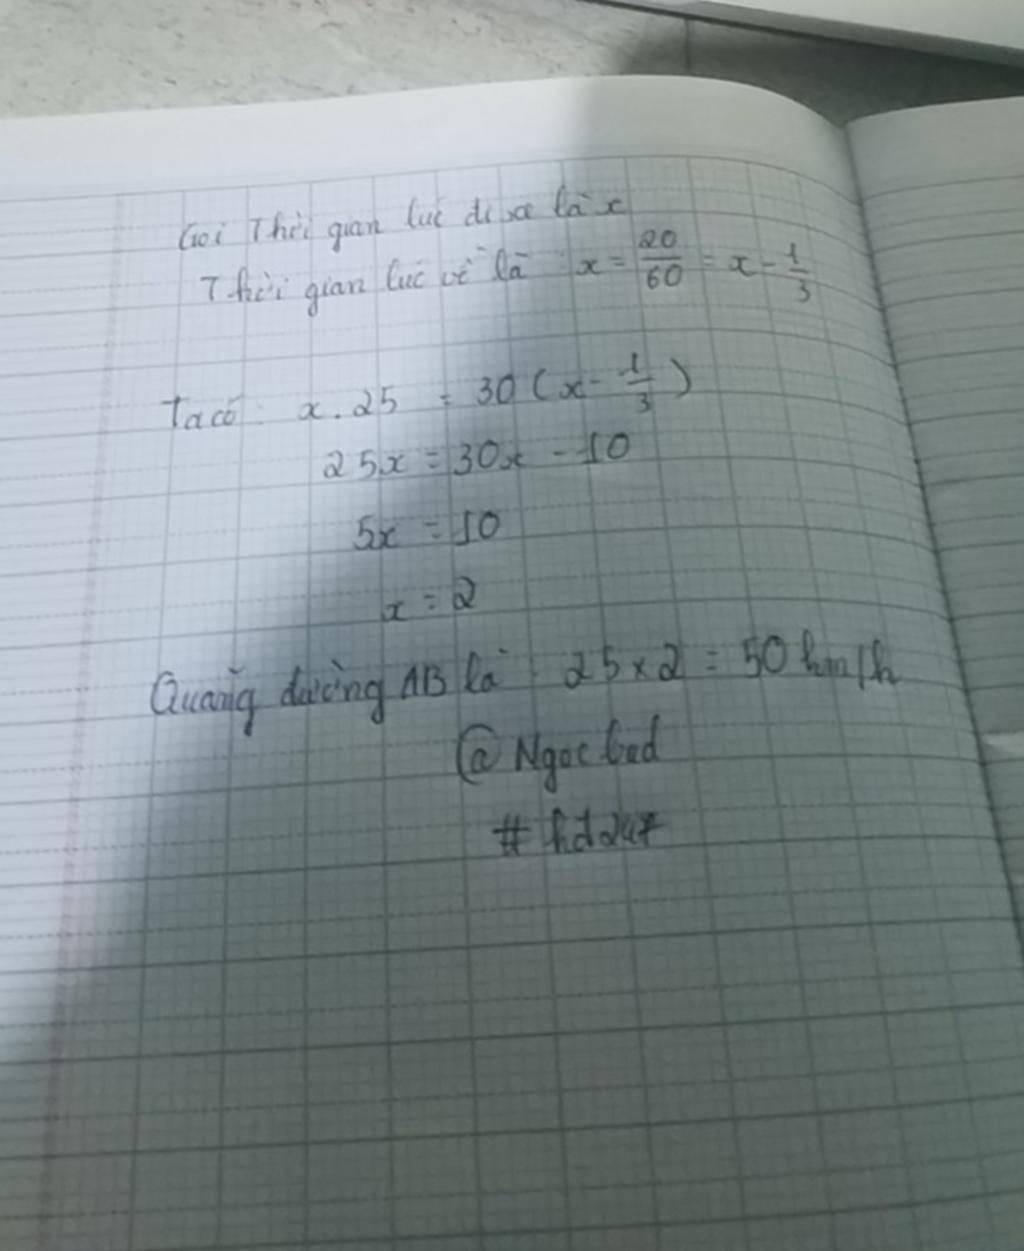 Gọi Thời gian lúc đi xa là x
Thời gian lúc về là x = 20/60 = x - 1/3
Ta có: x . 25 = 30 (x - 1/3)
25x = 30x - 10
5x = 10
x = 2
Quãng đường AB là : 25 x 2 = 50 km/h
@ Ngoc
# hd247